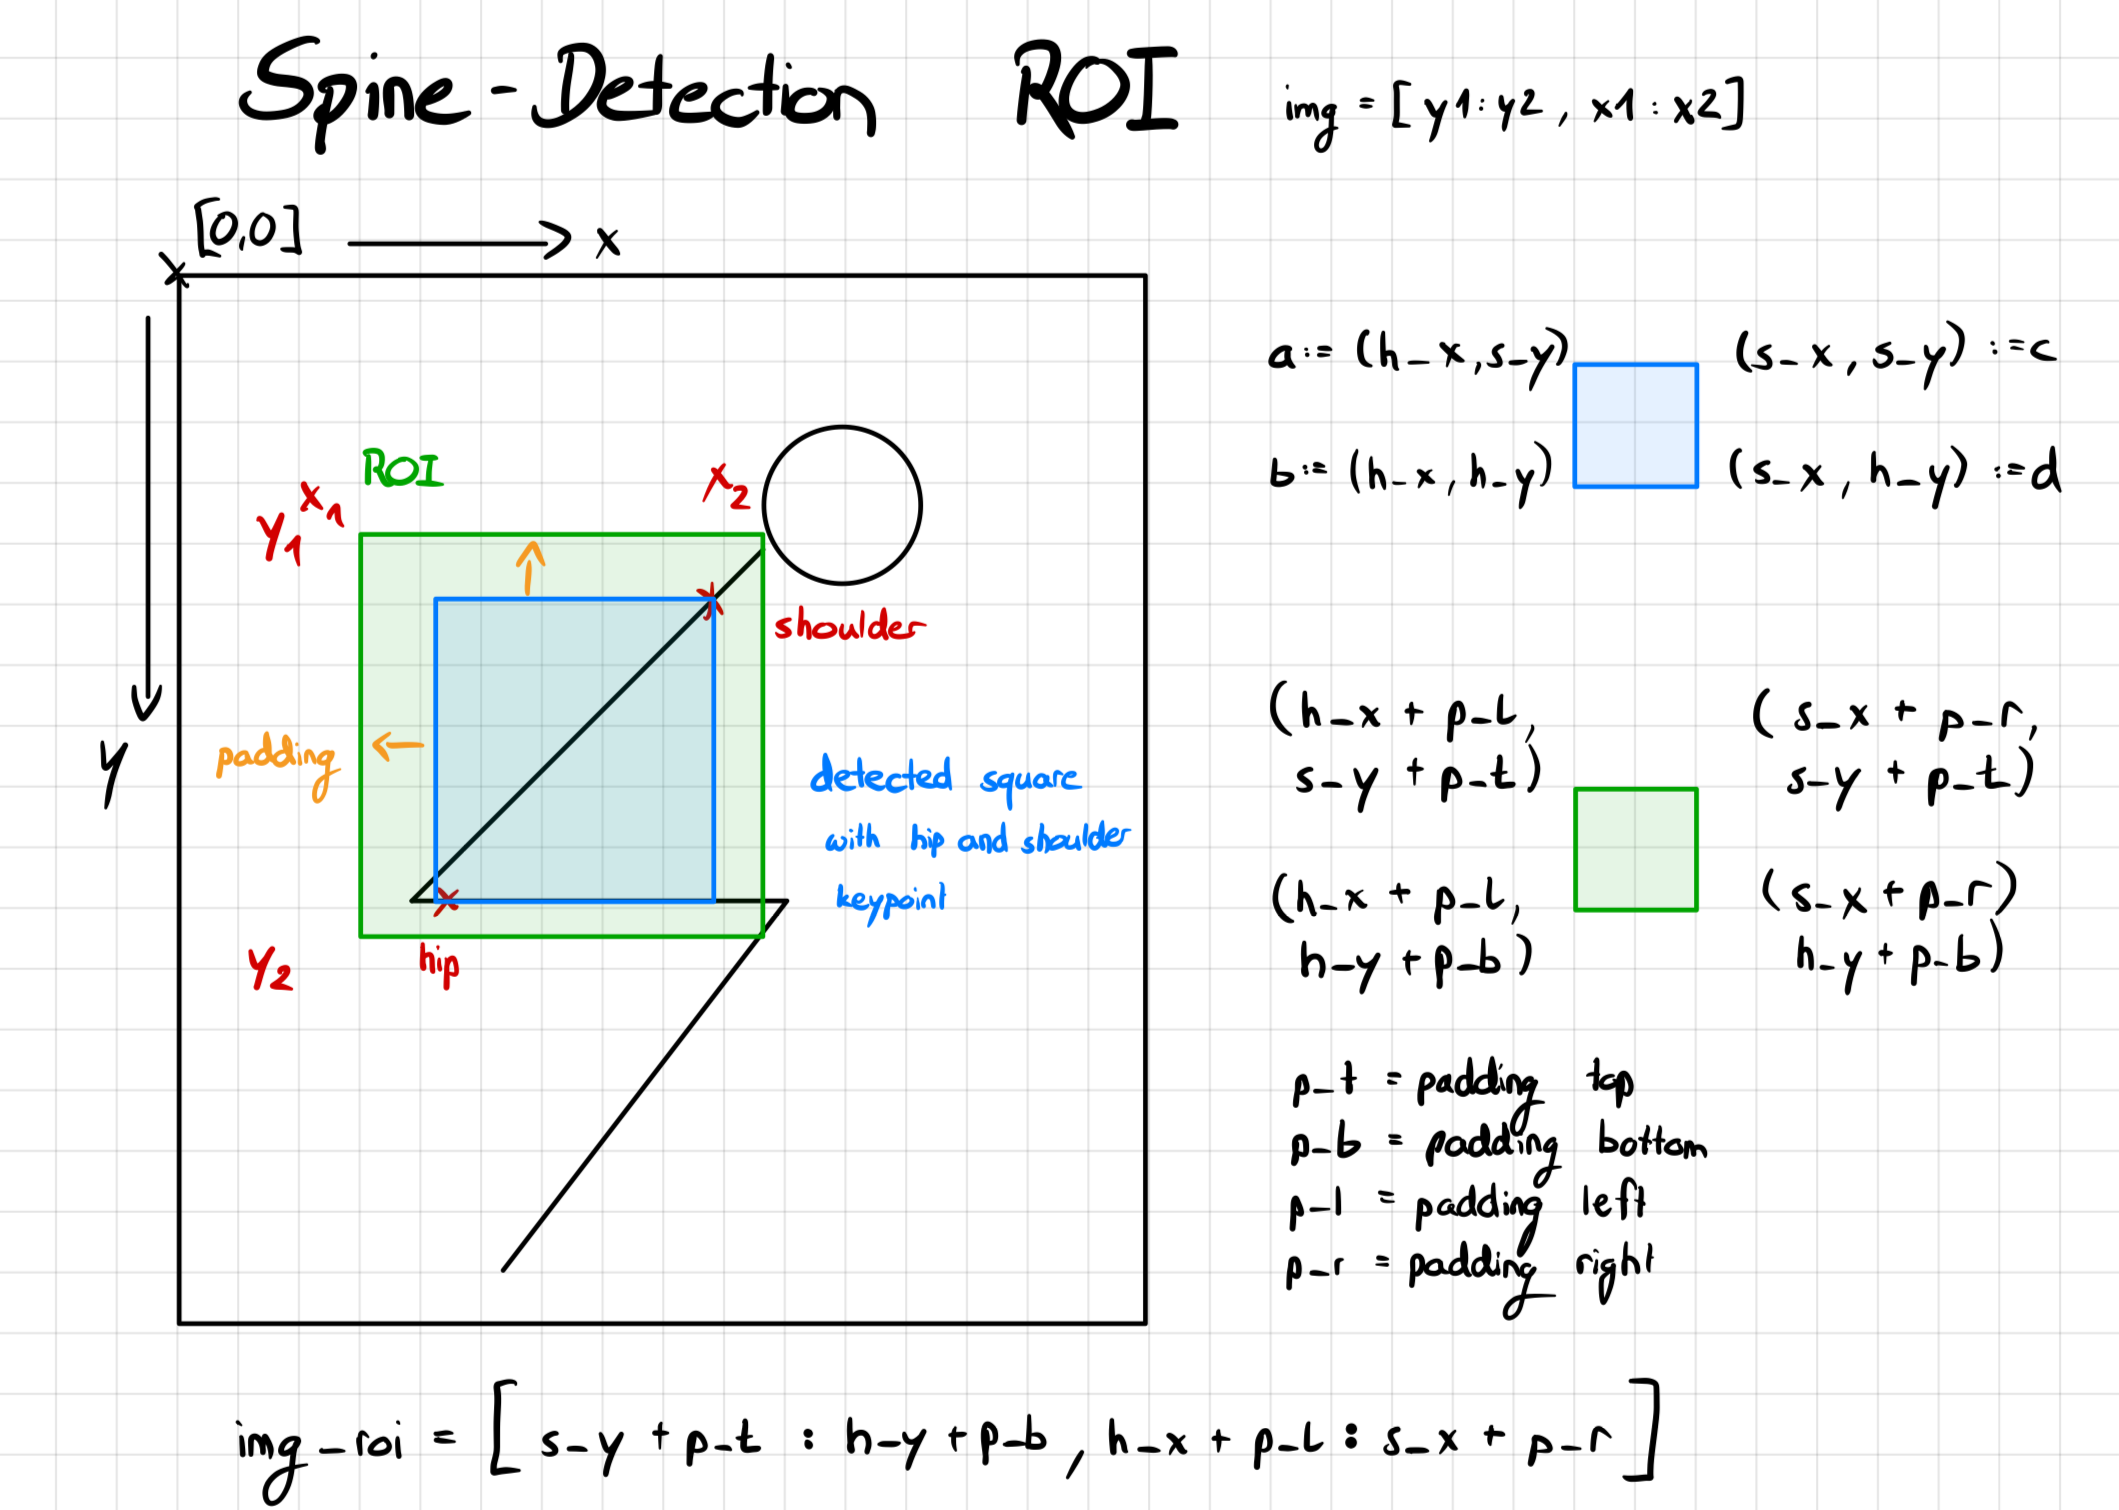 Spine-Detection ROI
img = [y1:y2, x1:x2]
[0,0]
x
y
a:= (h_x,s_y)
(s_x, s_y) :=c
b:= (h_x, h_y)
(s_x, h_y) :=d
ROI
x1
y1
x2
shoulder
padding
detected square
with hip and shoulder
keypoint
hip
y2
(h_x + p_l,
s_y + p_t)
(s_x + p_r,
s_y + p_t)
(h_x + p_l,
h_y + p_b)
(s_x + p_r)
h_y + p_b)
p_t = padding top
p_b = padding bottom
p_l = padding left
p_r = padding right
img_roi = [s_y + p_t : h_y + p_b, h_x + p_l : s_x + p_r]